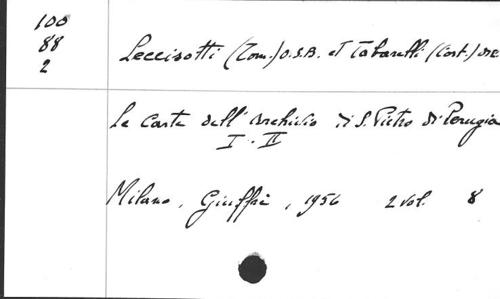 100
88
2
Leccisotti (Tom.) O.S.B. et Tabarelli (Cost.)
Le carte dell'Archivio di S. Pietro di Perugia
I - II
Milano, Giuffrè, 1956 2 vol. 8